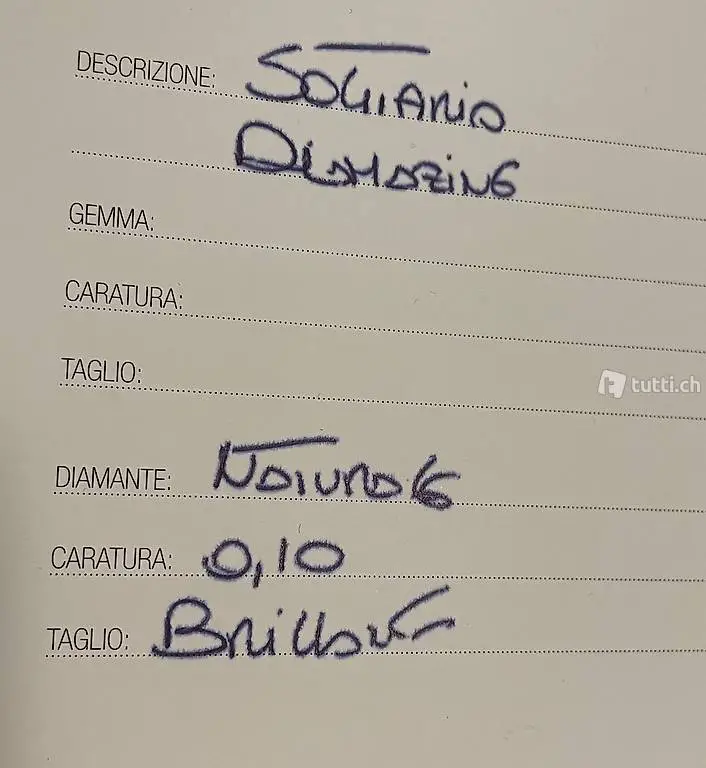 DESCRIZIONE: SOLITARIO
DAMAZING
GEMMA:
CARATURA:
TAGLIO:
tutti.ch
DIAMANTE: NATURALE
CARATURA: 0,10
TAGLIO: Brillante